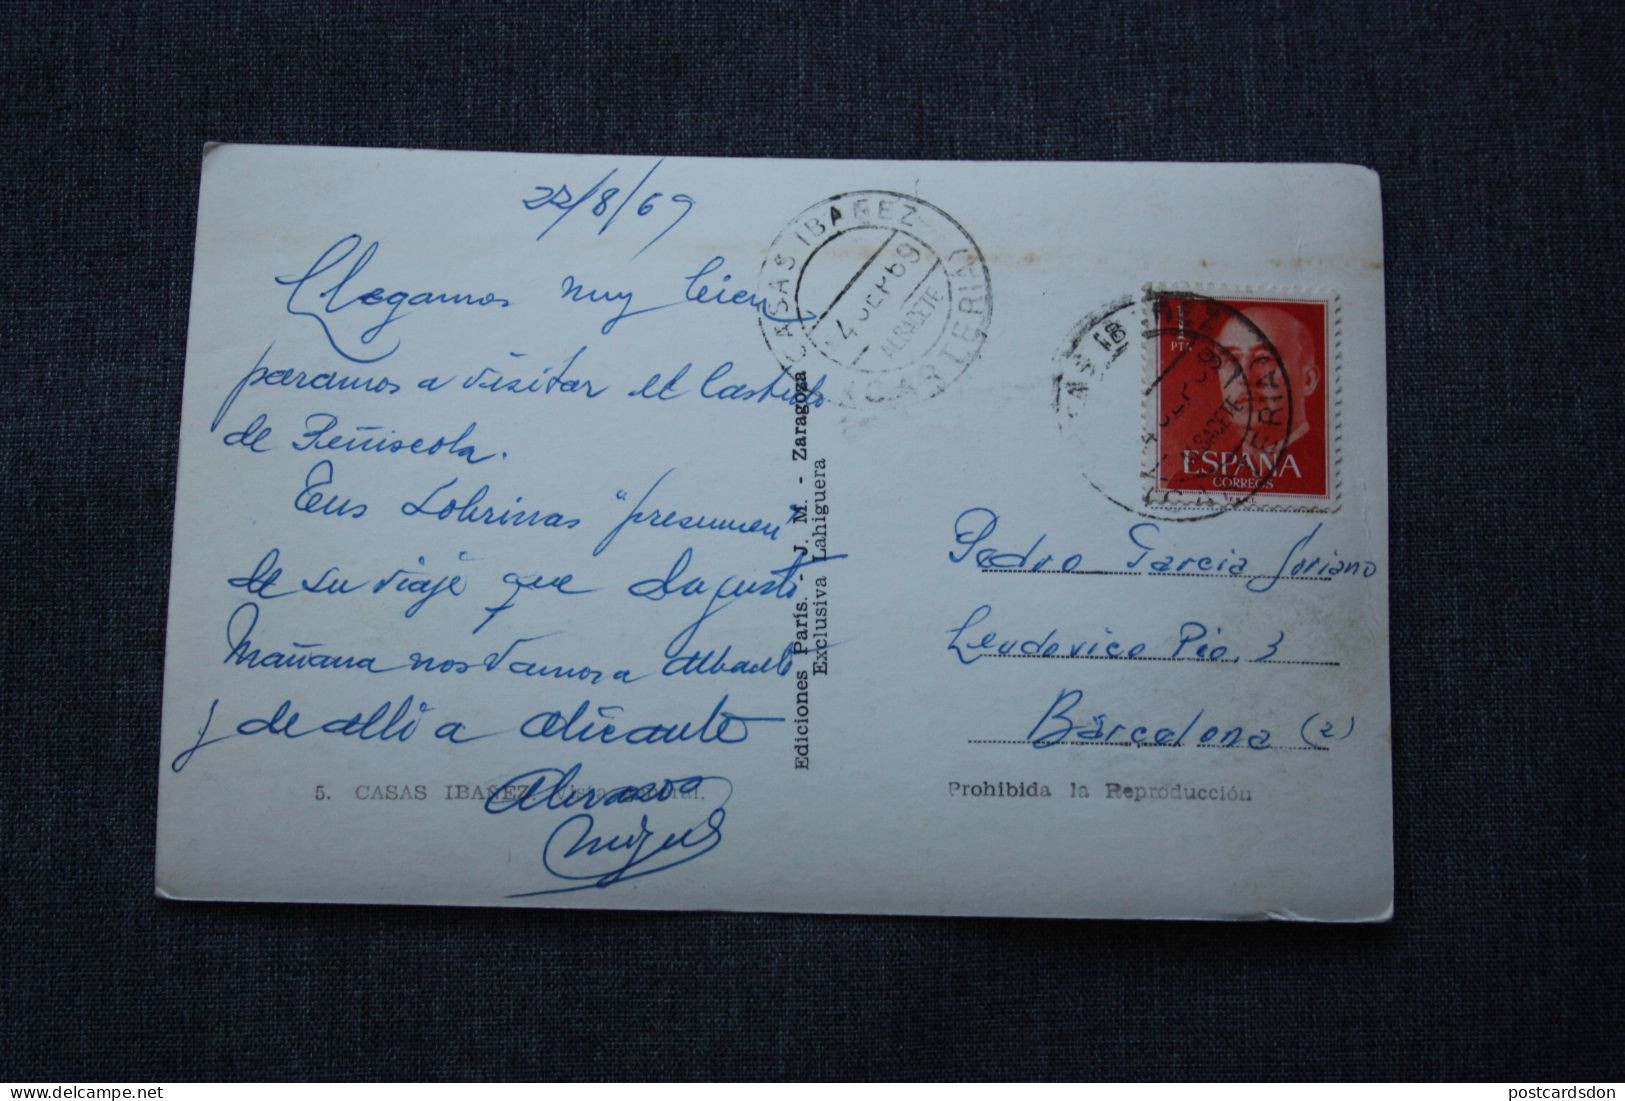 22/8/69
Llegamos muy bien
paramos a visitar el Castillo
de Peñiscola.
Tus Sobrinas "presumen"
de su viaje que da gusto
Mañana nos vamos a Albacete
y de alli a Alicante
Abrazos
Miguel
5. CASAS IBAÑEZ. Vista general.
CASAS IBAÑEZ
4 SEP 69
ALBACETE
CARTERIA
Ediciones París. - J. M. - Zaragoza
Exclusiva Lahiguera
1 PTA
ESPAÑA
CORREOS
ALBACETE
Pedro Garcia Soriano
Leudovico Pio, 3
Barcelona (2)
Prohibida la Reproducción
postcardsdon